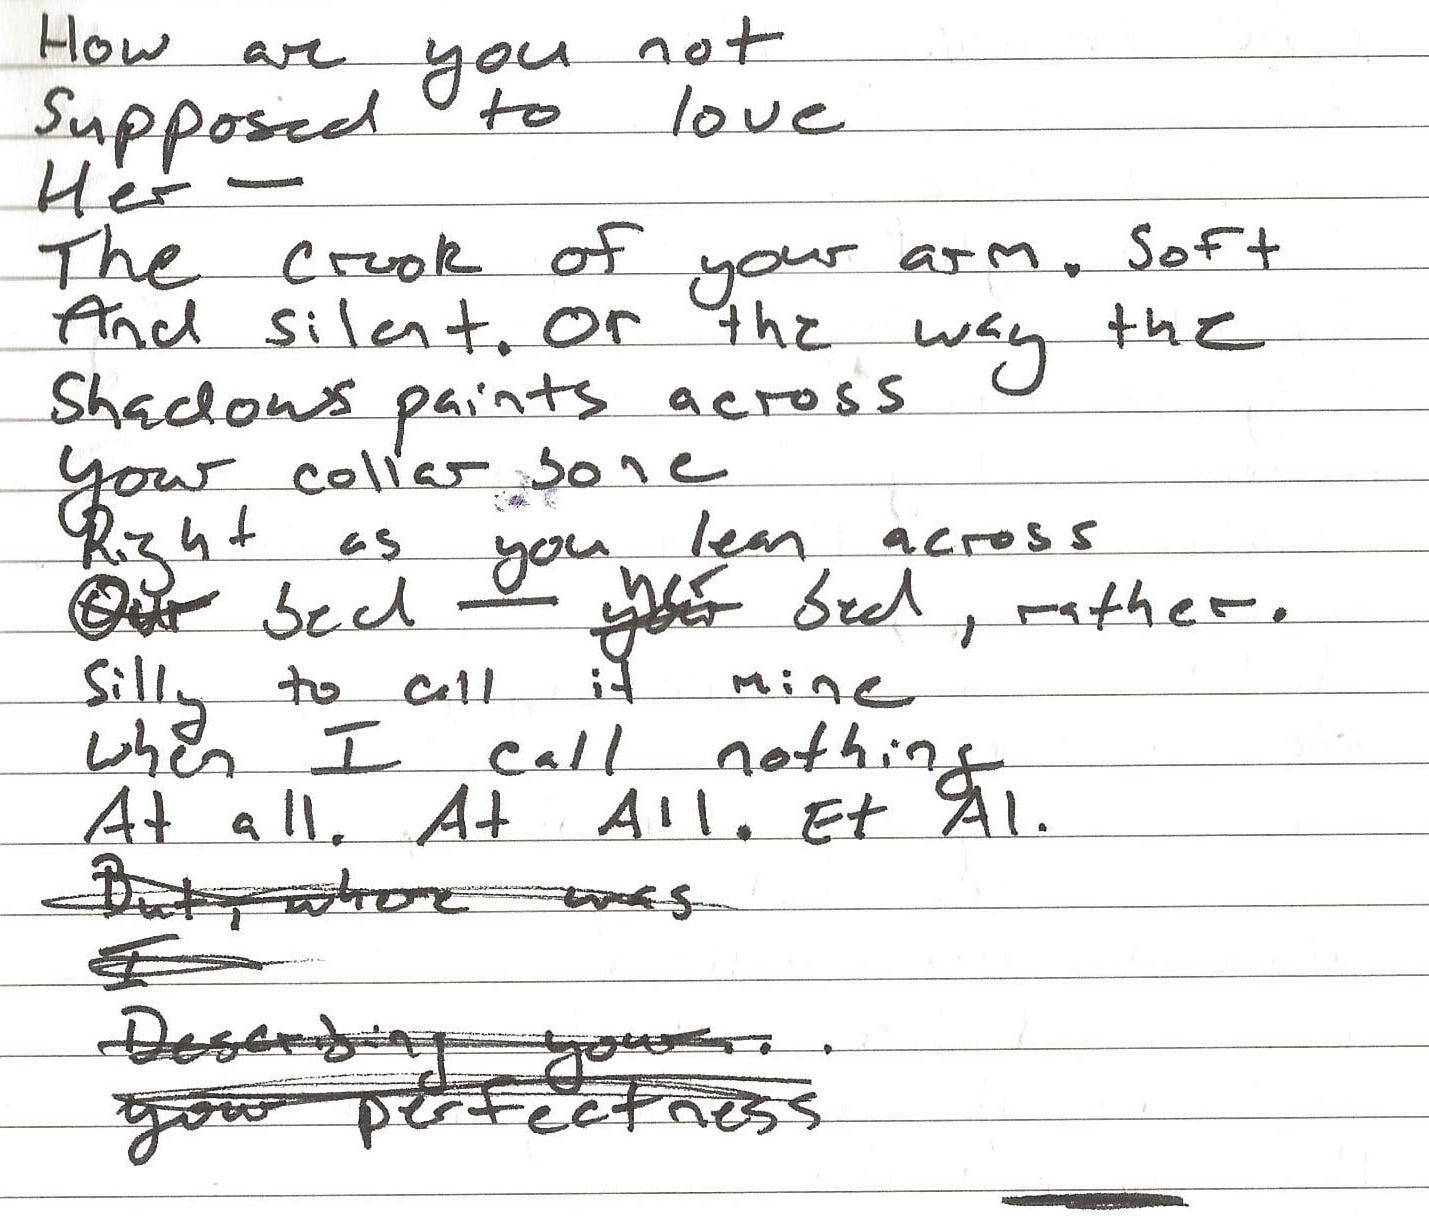 How are you not
Supposed to love
Her —
The crook of your arm. Soft
And silent. Or the way the
Shadows paints across
your collar bone
Right as you lean across
Our bed — your her bed, rather.
Silly to call it mine
when I call nothing
At all. At All. Et Al.
But, where was
I
Describing your...
your perfectness